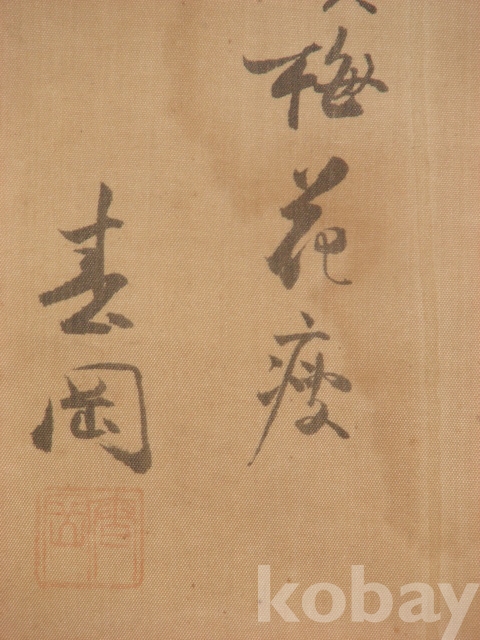 梅花瘦
春岡
kobay